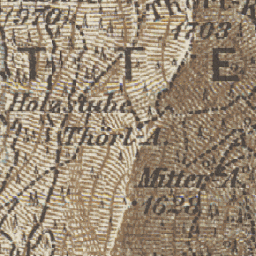 1703
T T E
Holzstube
Thörl A.
Mitter A.
1628